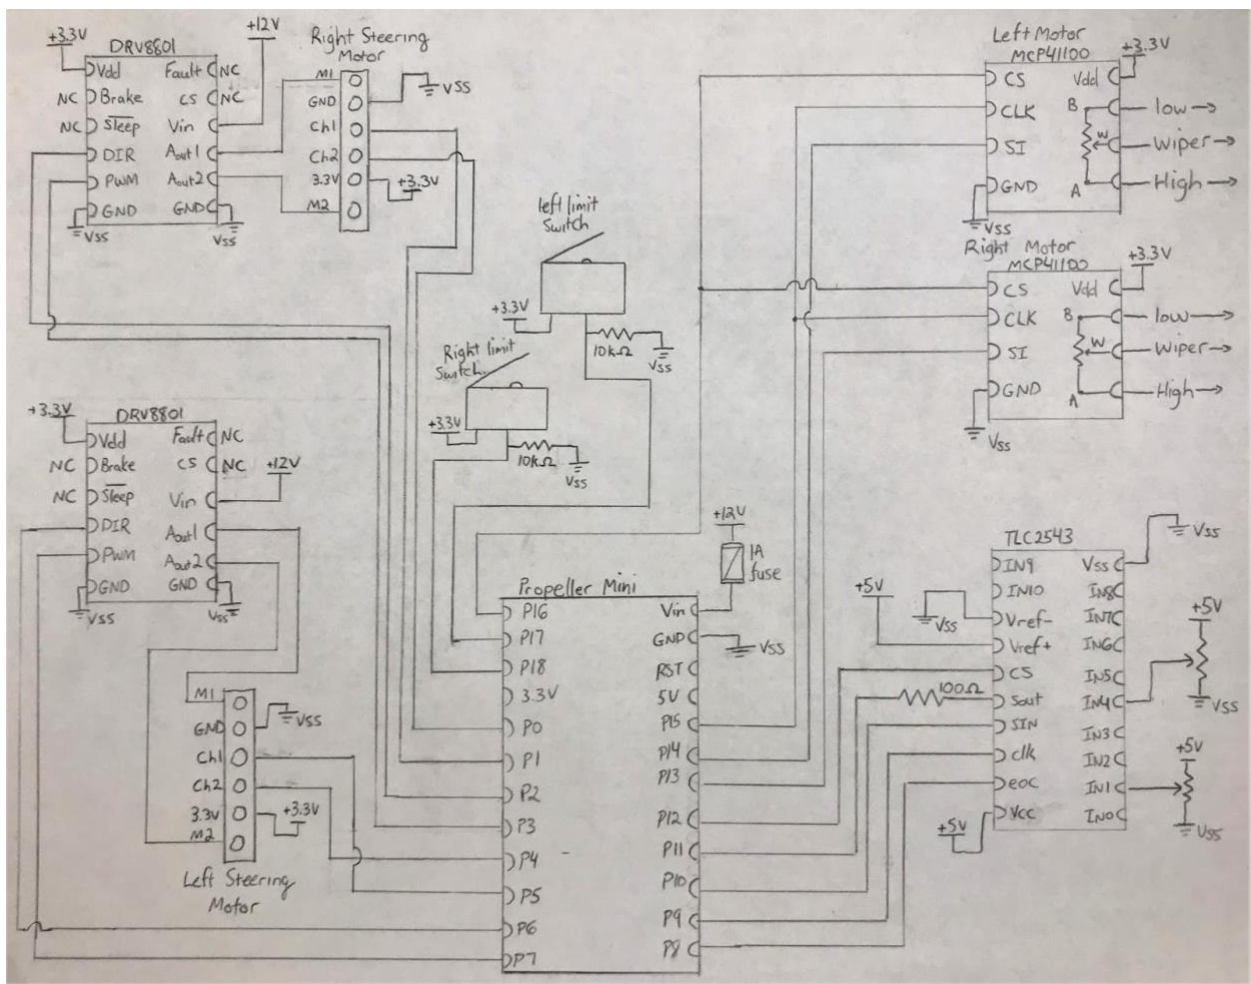 +3.3V
DRV8801
Vdd
Fault
NC
NC
Brake
CS
NC
NC
Sleep
Vin
+12V
DIR
Aout1
PWM
Aout2
GND
GND
Vss
Vss
Right Steering
Motor
M1
GND
Vss
Ch1
Ch2
3.3V
+3.3V
M2
left limit
Switch
+3.3V
10kΩ
Vss
Right limit
Switch
+3.3V
10kΩ
Vss
Left Motor
MCP41100
+3.3V
CS
Vdd
CLK
B
low
SI
W
Wiper
GND
A
High
Vss
Right Motor
MCP41100
+3.3V
CS
Vdd
CLK
B
low
SI
W
Wiper
GND
A
High
Vss
+3.3V
DRV8801
Vdd
Fault
NC
NC
Brake
CS
NC
NC
Sleep
Vin
+12V
DIR
Aout1
PWM
Aout2
GND
GND
Vss
Vss
M1
GND
Vss
Ch1
Ch2
3.3V
+3.3V
M2
Left Steering
Motor
+12V
1A
fuse
Propeller Mini
P16
Vin
P17
GND
Vss
P18
RST
3.3V
5V
P0
P15
P1
P14
P2
P13
P3
P12
P4
P11
P5
P10
P6
P9
P7
P8
TLC2543
Vss
IN9
Vss
IN10
IN8
+5V
Vss
Vref-
IN7
Vref+
IN6
+5V
CS
IN5
100Ω
Sout
IN4
Vss
SIN
IN3
clk
IN2
+5V
eoc
IN1
+5V
Vcc
IN0
Vss